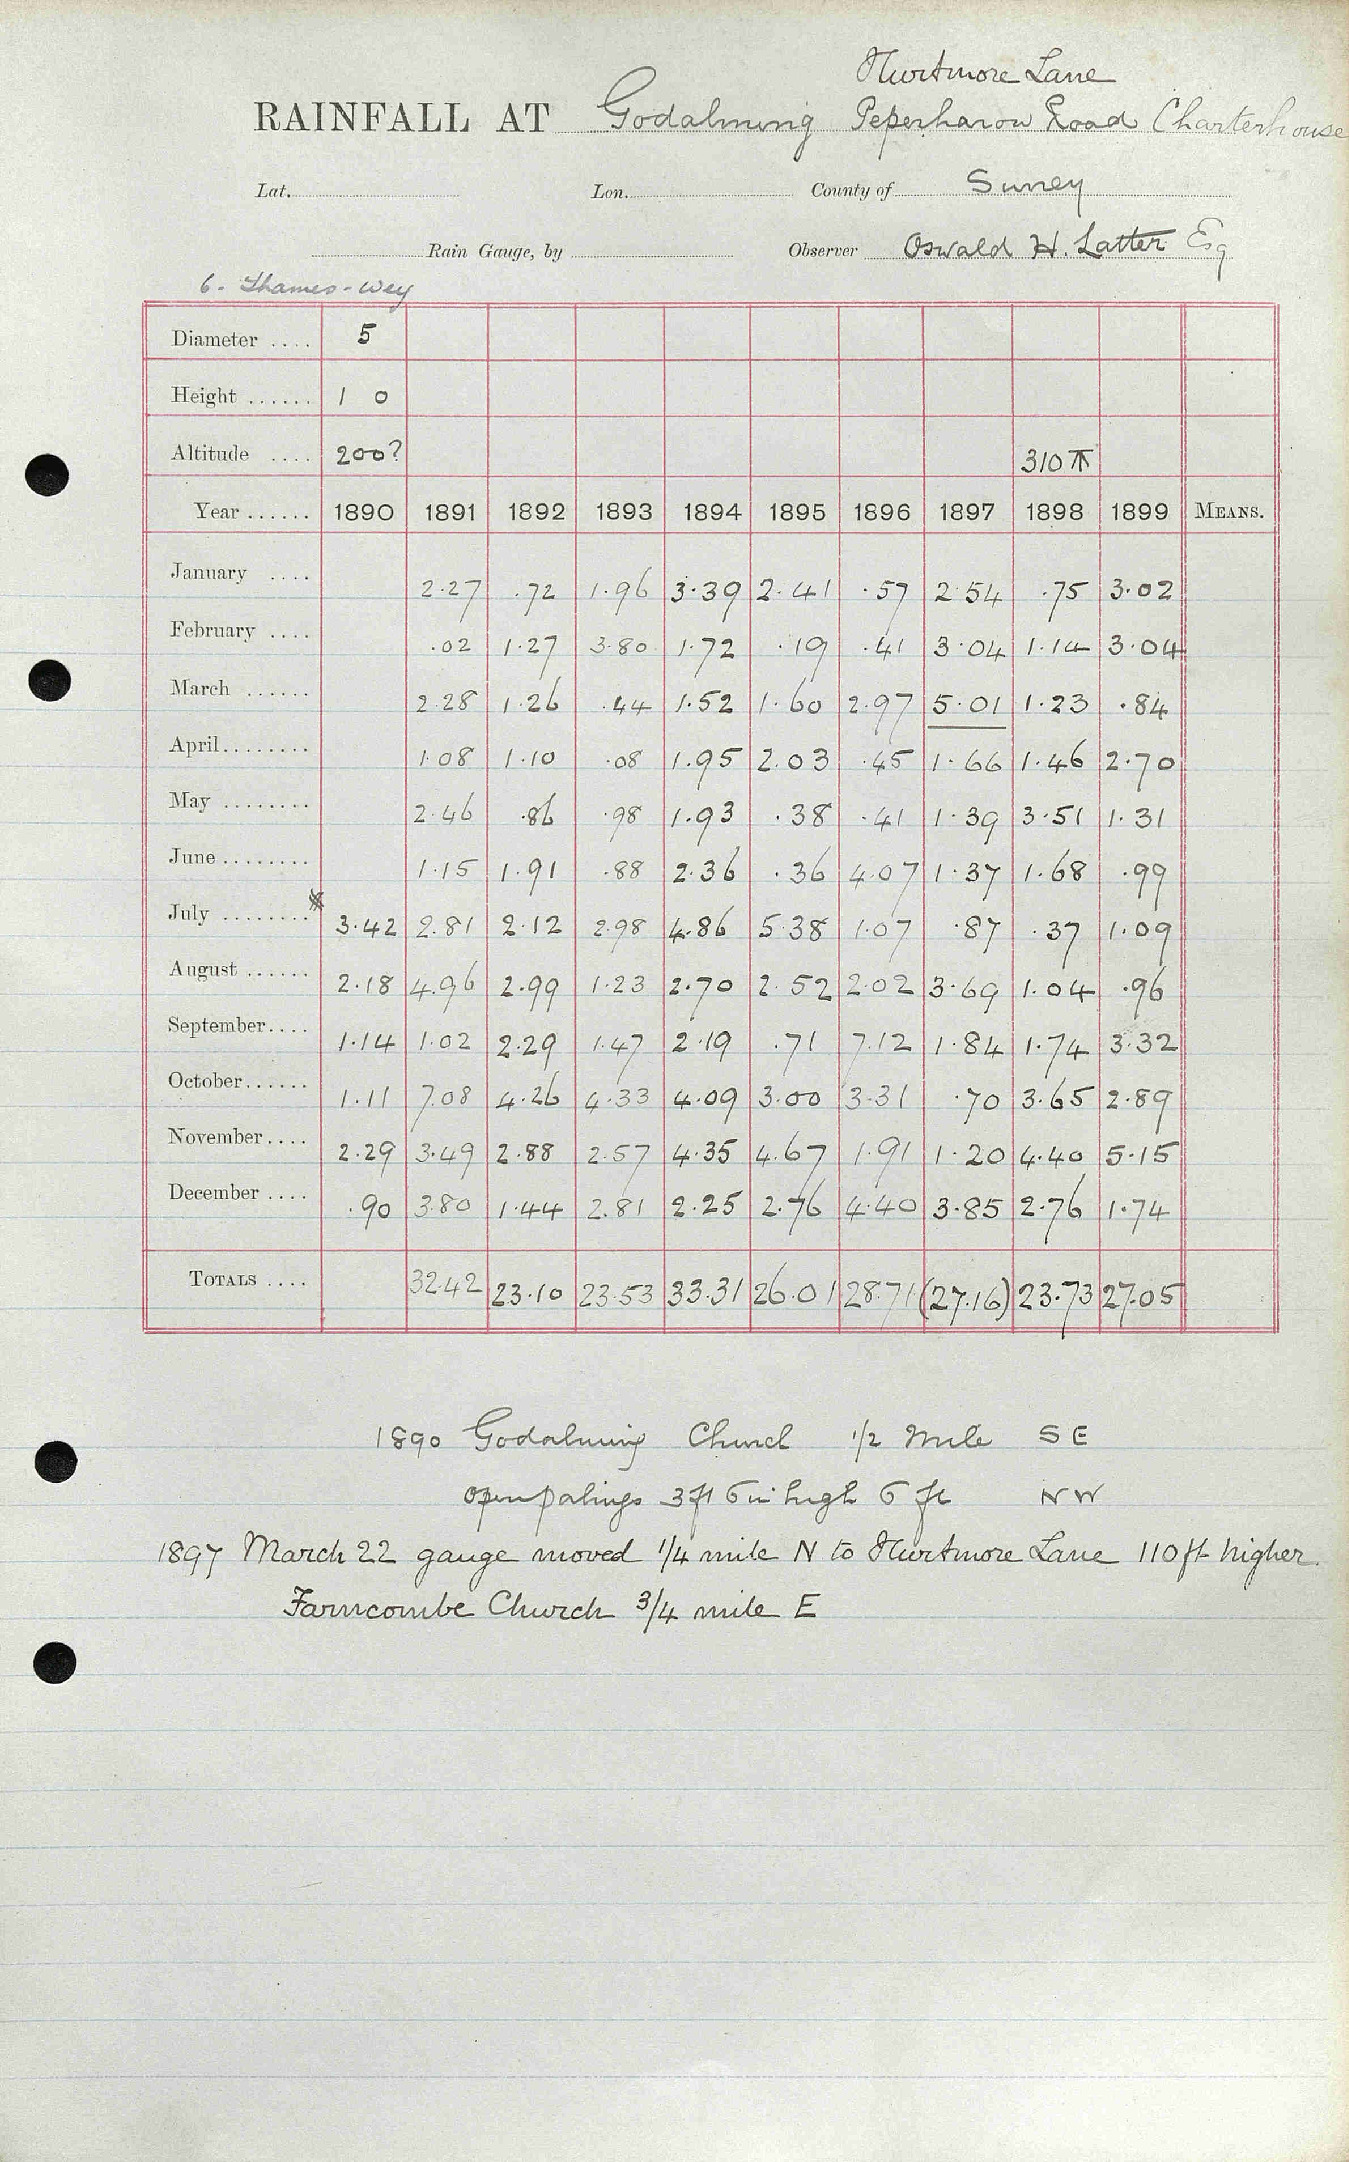 Hurtmore Lane
RAINFALL AT Godalming Peperharow Road Charterhouse
Lat. Lon. County of Surrey
Rain Gauge, by Observer Oswald H. Latter Esq
6 - Thames - Wey
Diameter .... 5
Height ...... 1 0
Altitude .... 200? 310 ⊼
Year ...... 1890 1891 1892 1893 1894 1895 1896 1897 1898 1899 MEANS.
January .... 2.27 .72 1.96 3.39 2.41 .57 2.54 .75 3.02
February .... .02 1.27 3.80 1.72 .19 .41 3.04 1.14 3.04
March ...... 2.28 1.26 .44 1.52 1.60 2.97 5.01 1.23 .84
April ........ 1.08 1.10 .08 1.95 2.03 .45 1.66 1.46 2.70
May ........ 2.46 .86 .98 1.93 .38 .41 1.39 3.51 1.31
June ........ 1.15 1.91 .88 2.36 .36 4.07 1.37 1.68 .99
July ........ 3.42 2.81 2.12 2.98 4.86 5.38 1.07 .87 .37 1.09
August ...... 2.18 4.96 2.99 1.23 2.70 2.52 2.02 3.69 1.04 .96
September .... 1.14 1.02 2.29 1.47 2.19 .71 7.12 1.84 1.74 3.32
October ...... 1.11 7.08 4.26 4.33 4.09 3.00 3.31 .70 3.65 2.89
November .... 2.29 3.49 2.88 2.57 4.35 4.67 1.91 1.20 4.40 5.15
December .... .90 3.80 1.44 2.81 2.25 2.76 4.40 3.85 2.76 1.74
TOTALS .... 32.42 23.10 23.53 33.31 26.01 28.71 (27.16) 23.73 27.05
1890 Godalming Church 1/2 Mile S E
Open palings 3 ft 6 in high 6 ft N W
1897 March 22 gauge moved 1/4 mile N to Hurtmore Lane 110 ft higher.
Farncombe Church 3/4 mile E